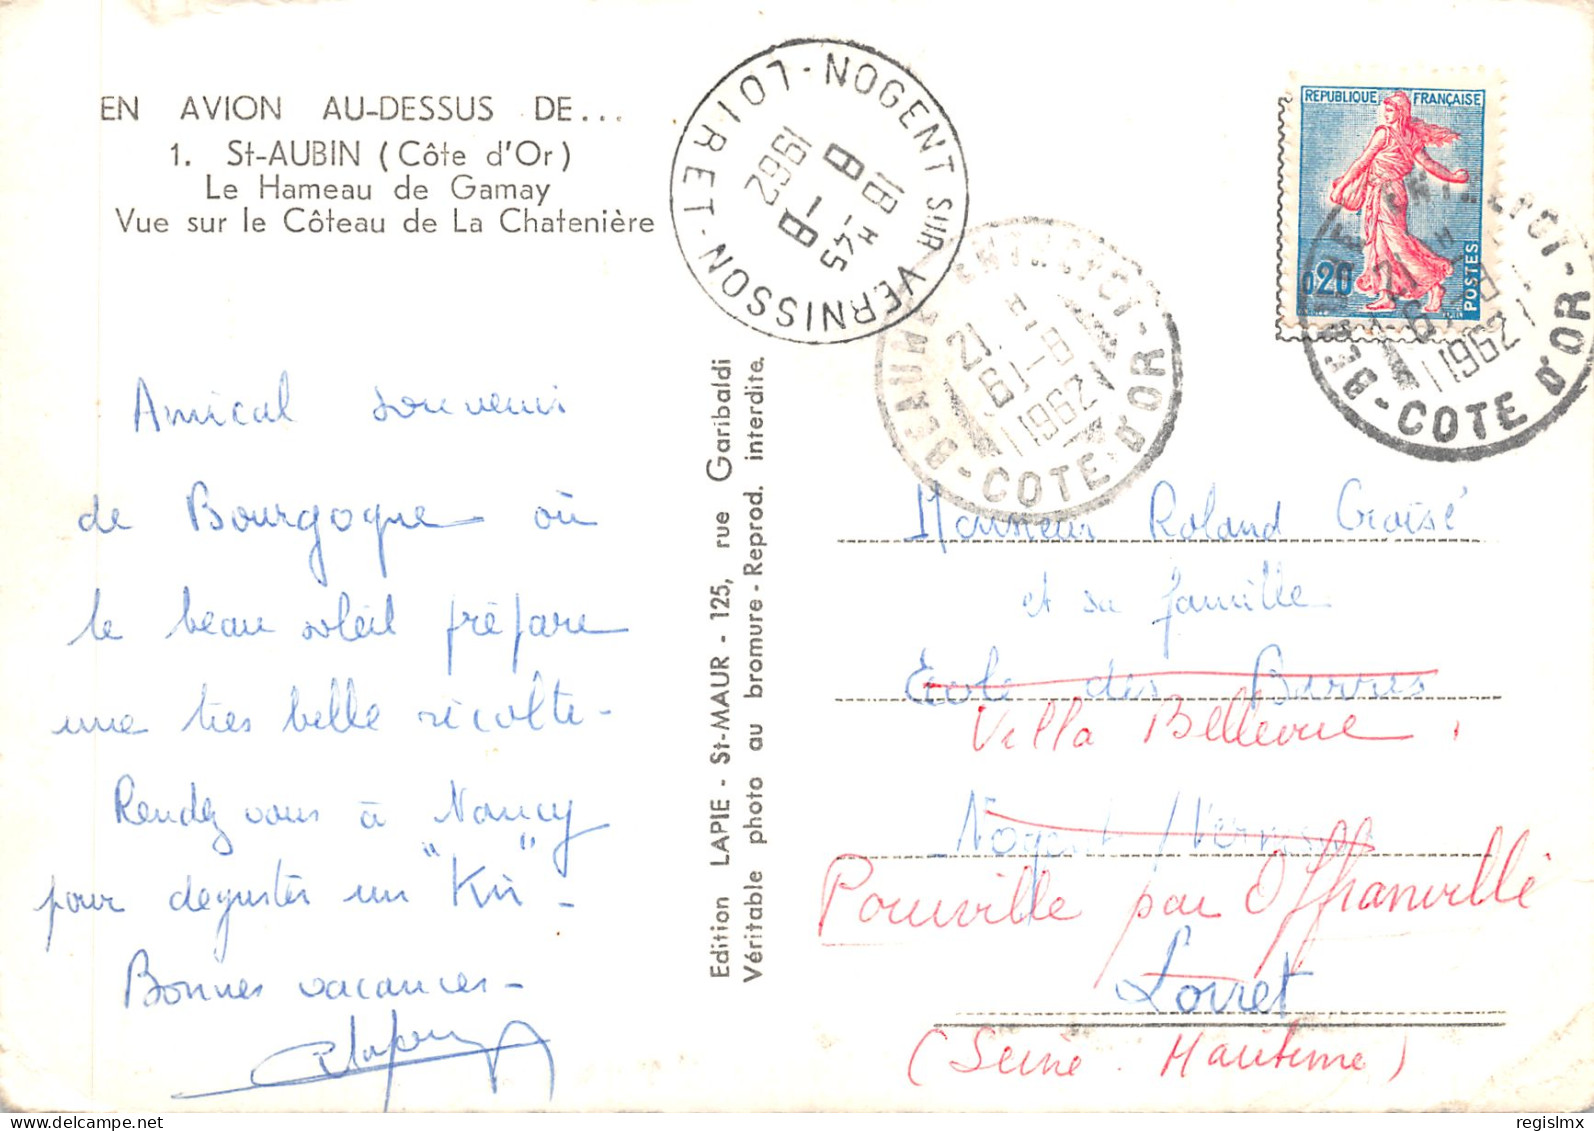 EN AVION AU-DESSUS DE...
1. St-AUBIN (Côte d'Or)
Le Hameau de Gamay
Vue sur le Côteau de La Chatenière
Amical souvenir
de Bourgogne où
le beau soleil prépare
une très belle récolte -
Rendez vous à Nancy
pour deguster un "Kir" -
Bonnes vacances -
Edition LAPIE - St-MAUR - 125, rue Garibaldi
Véritable photo au bromure - Reprod. interdite.
NOGENT SUR VERNISSON - LOIRET
18 H 45
8 - 8
1962
BEAUNE ENTREPOT - COTE D'OR
21 H
6 - 8
1962
REPUBLIQUE FRANÇAISE
0,20
POSTES
BEAUNE ENTREPOT - COTE D'OR
21 H
6 - 8
1962
Monsieur Roland
et sa famille
Ecole des Barres
Villa Bellevue,
Nogent / Vernisson
Pourville par Offranville
Loiret
(Seine Maritime)
regislmx